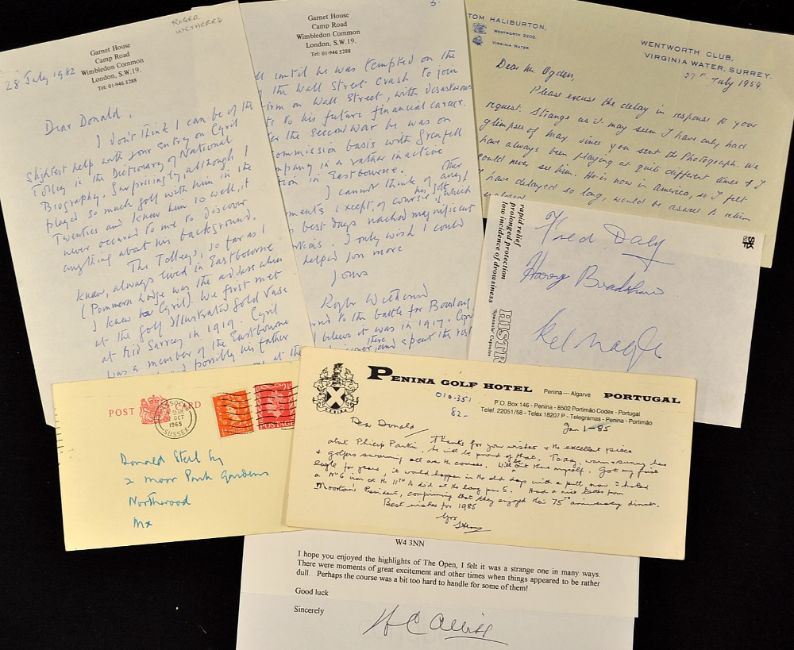 ROGER
WETHERED
Garnet House
Camp Road
Wimbledon Common
London, S.W.19.
Tel: 01-946 5288
28 July 1982
Dear Donald,
I don't think I can be of the
slightest help with your entry on Cyril
Tolley in the Dictionary of National
Biography. Surprisingly although I
played so much golf with him in the
Twenties and knew him so well, it
never occurred to me to discover
anything about his background.
The Tolleys, so far as I
knew, always lived in Eastbourne
(Pommern Lodge was the address when
I knew Cyril) We first met
at the Golf Illustrated Gold Vase
at Mid Surrey in 1919. Cyril
was a member of the Eastbourne
and possibly his father
Garnet House
Camp Road
Wimbledon Common
London, S.W.19.
Tel: 01-946 5288
until he was tempted on the
of the Wall Street crash to join
firm on Wall Street, with disastrous
to his future financial career.
the Second War he was on
commission basis with Grenfell
company in a rather inactive
in Eastbourne.
I cannot think of any other
I except, of course, his golf which
best days reached magnificent
I only wish I could
helped you more
Yours
Roger Wethered
to the battle for Bourlon,
I believe it was in 1917. Cyril
and spent the rest
TOM HALIBURTON,
WENTWORTH
VIRGINIA WATER.
WENTWORTH CLUB,
VIRGINIA WATER, SURREY.
27th July 1959
Dear Mr. Ogden,
Please excuse the delay in response to your
request. Strange as it may seem I have only had
glimpses of May, since you sent the Photograph. We
have always been playing at quite different times & I
could never see him. He is now in America, so I felt
I have delayed so long, would be as well to return
rapid relief
prolonged protection
low incidence of drowsiness
Fred Daly
Harry Bradshaw
Kel Nagle
POST CARD
OCT
1965
SUSSEX
POSTAGE
Donald Steel Esq
2 Moor Park Gardens
Northwood
Mx
PENINA GOLF HOTEL
Penina — Algarve
PORTUGAL
P.O. Box 146 - Penina - 8502 Portimão Codex - Portugal
Telef. 22051/58 - Telex 18207 P - Telegramas - Penina - Portimão
010-351
82-
Jan 1-85
Dear Donald: Thanks for your wishes & the excellent piece
about Philip Parkin, he will be proud of that. Today, warm, sunny day
& golfers swarming all over the course. Went out there myself. Got my first
eagle for years, it would happen in the old days with a putt, now I holed
a No 6 iron at the 11th & did it at the long par 5. Had a nice letter from
Moortown's President, confirming that they enjoyed their 75th anniversary dinner.
Best wishes for 1985
Yrs
W4 3NN
I hope you enjoyed the highlights of The Open, I felt it was a strange one in many ways.
There were moments of great excitement and other times when things appeared to be rather
dull. Perhaps the course was a bit too hard to handle for some of them!
Good luck
Sincerely